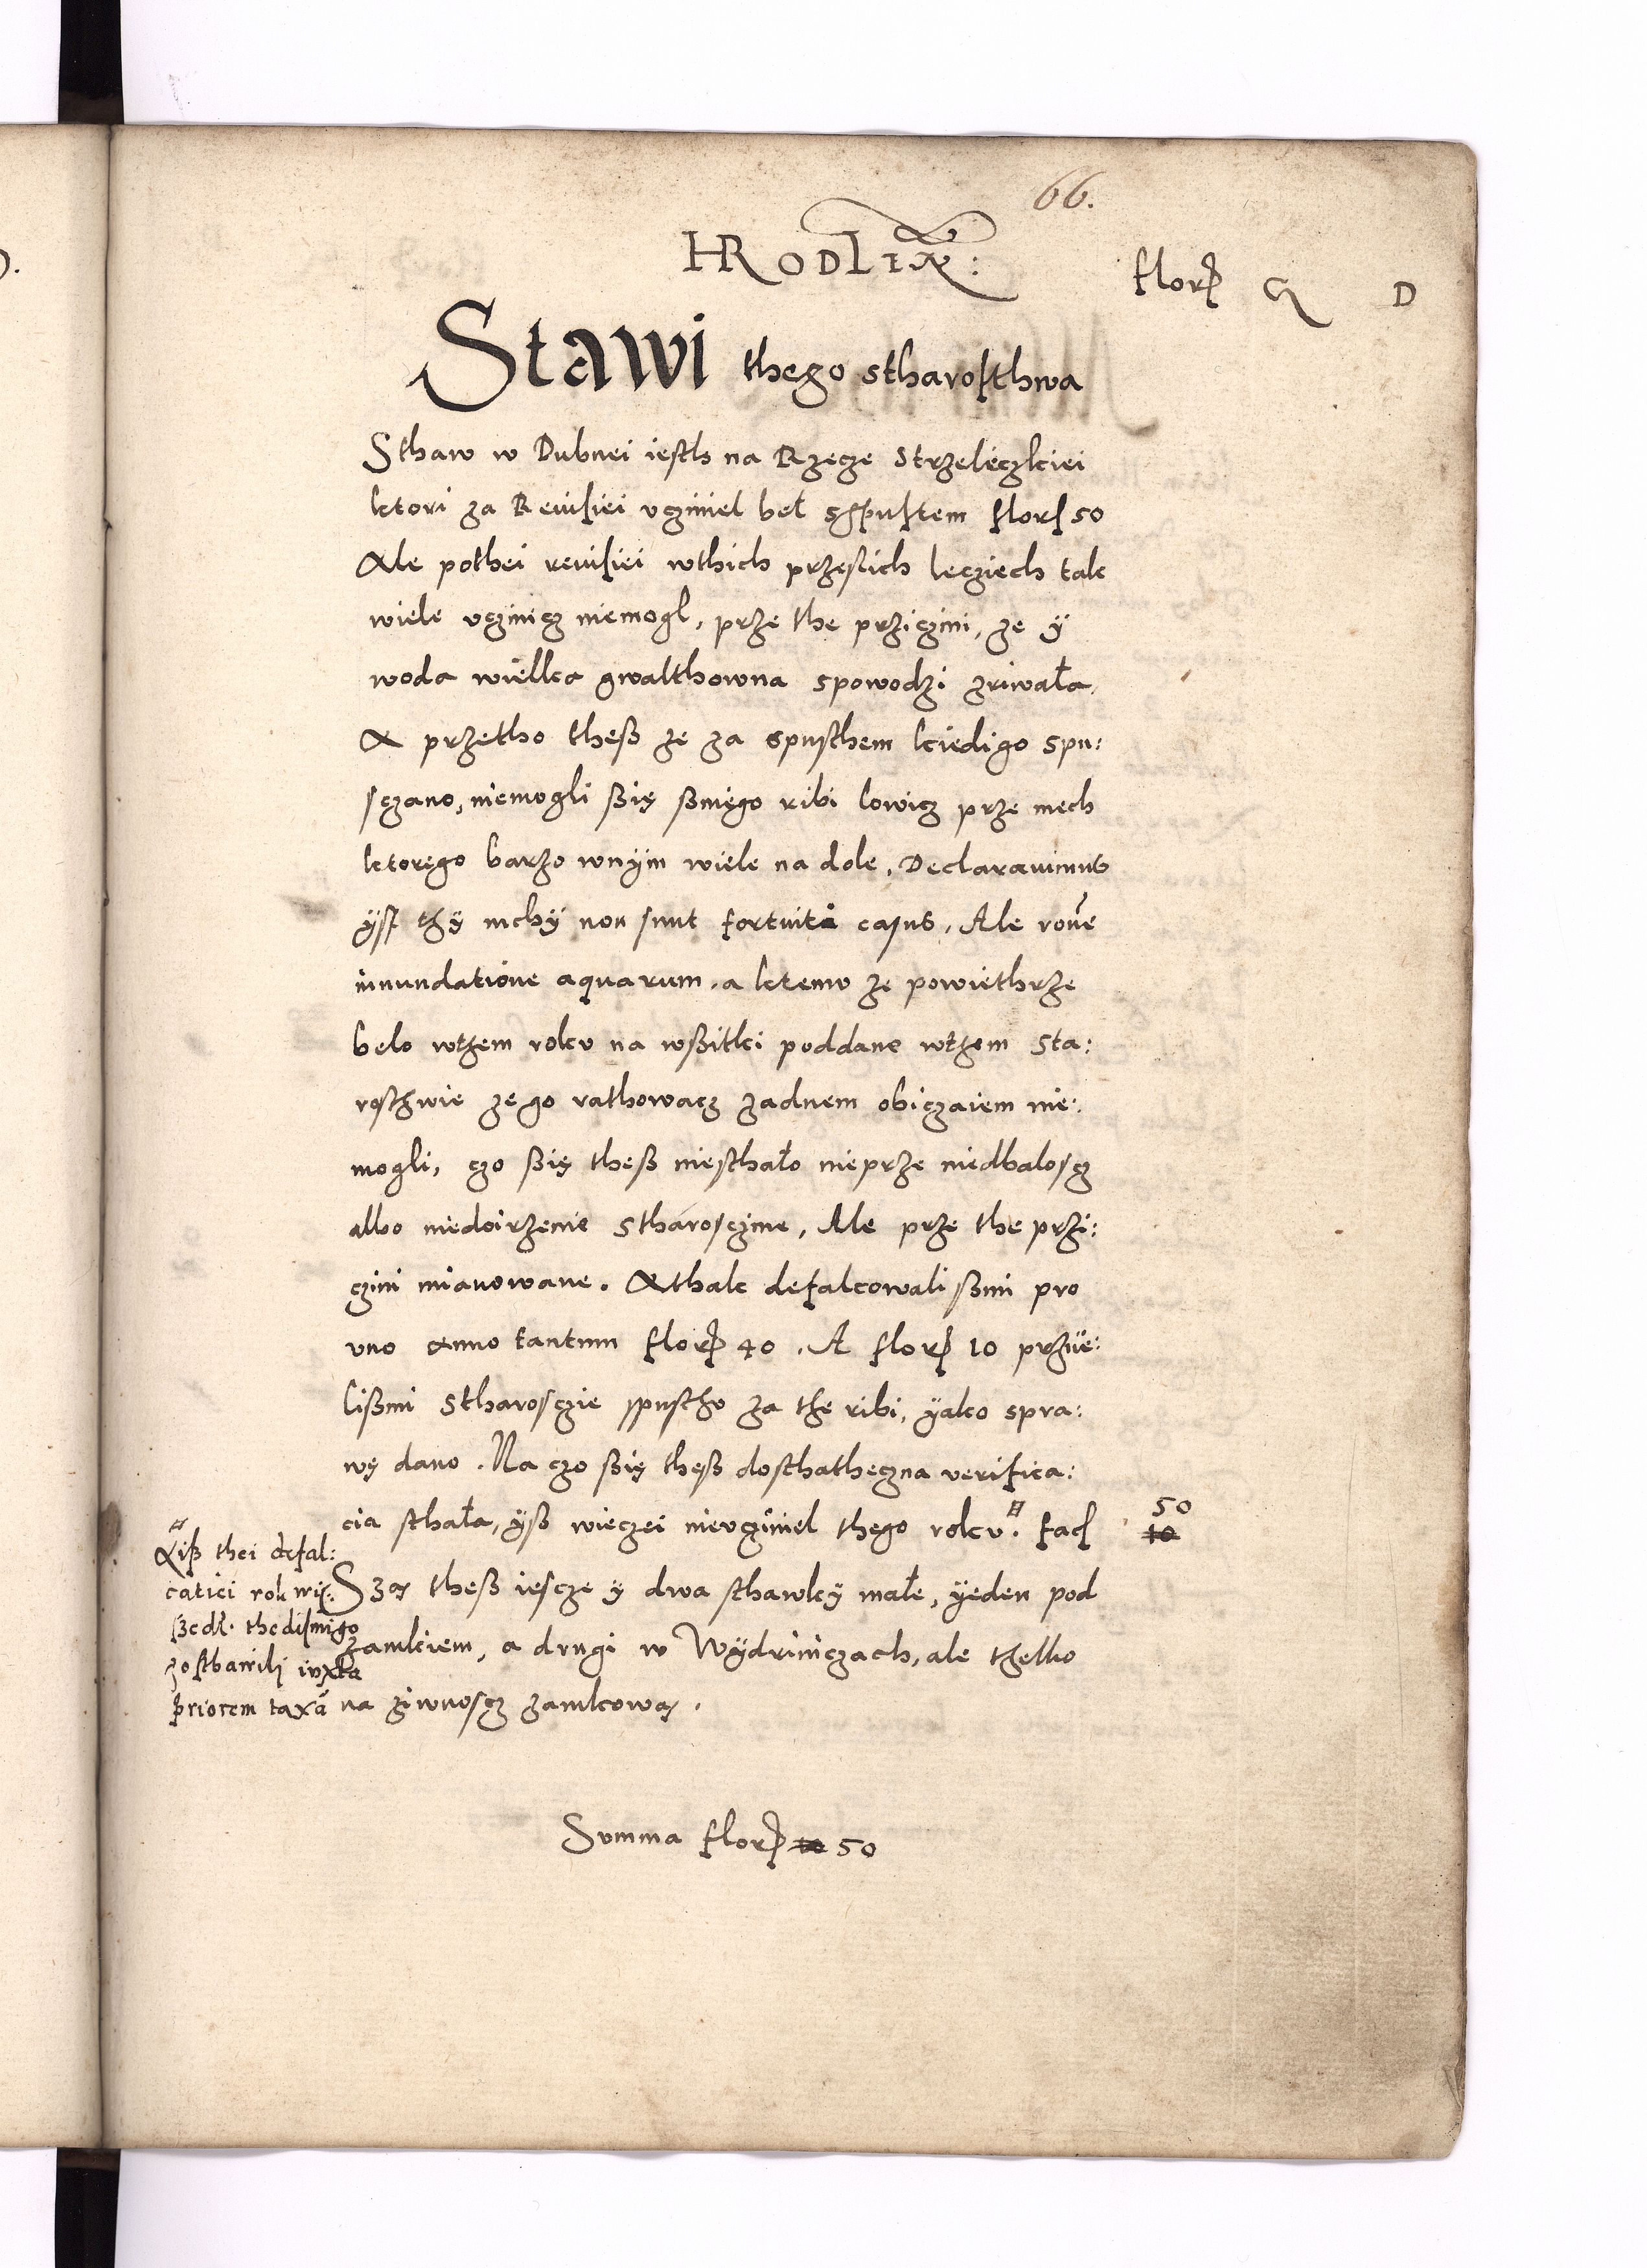 66.
HRODLIEN:
flor G D
Stawi thego stharosthwa
Sthaw w Dubnei iesth na Rzecze Strzeleczkiei
ktori za Reuisiei vcziniel beł sspustem flor 50
Ale pothei reuisiei wthich przeslich lecziech tak
wiele vczinicz niemogl, prze the prziczini, ze y
woda wielka gwalthowna spowodzi zriwała,
A przetho theß ze za spusthem kiedigo spu:
sczano, niemogli ßię ßniego ribi lowicz prze mech
ktorego barzo wnÿm wiele na dole. Declarauimus
ÿst thÿ mchÿ non sunt fortuita casus. Ale rone
innundatione aquarum, a ktemv ze powiethrze
belo wthem rokv na wßitki poddane wthem sta:
rosthwie ze go rathowacz zadnem obiczaiem nie:
mogli, czo ßię theß niesthało nieprze niedbaloscz
albo niedoirzenie stharosczine, Ale prze the przi:
czini mianowane. Athak defalcowalißmi pro
vno anno tantum flor 40. A flor 10 prziie:
lißmi stharosczie spusthv za the ribi, ÿako spra:
wę dano. Na czo ßię theß dosthatheczna verifica:
cia sthała, ÿß wieczei nievcziniel thego rokv. fac 50
10
Są theß iescze ÿ dwa sthawkÿ małe, ÿeden pod
zamkiem, a drugi w Wÿdrinczach, ale thelko
na ziwnoscz zamkową.
Aiß thei defal:
catiei rok wi:
ßedł. thedismigo
zosthawili iuxta
priorem taxã
Summa flor 10 50